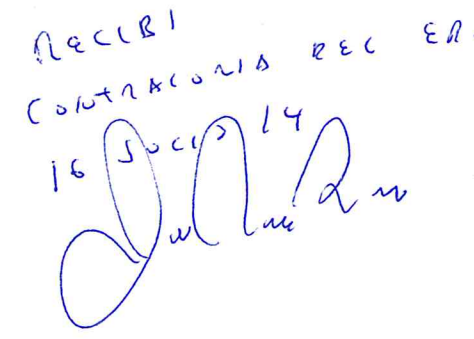 RECIBI
CONTRACONIA REC ER
16 JULIO 14